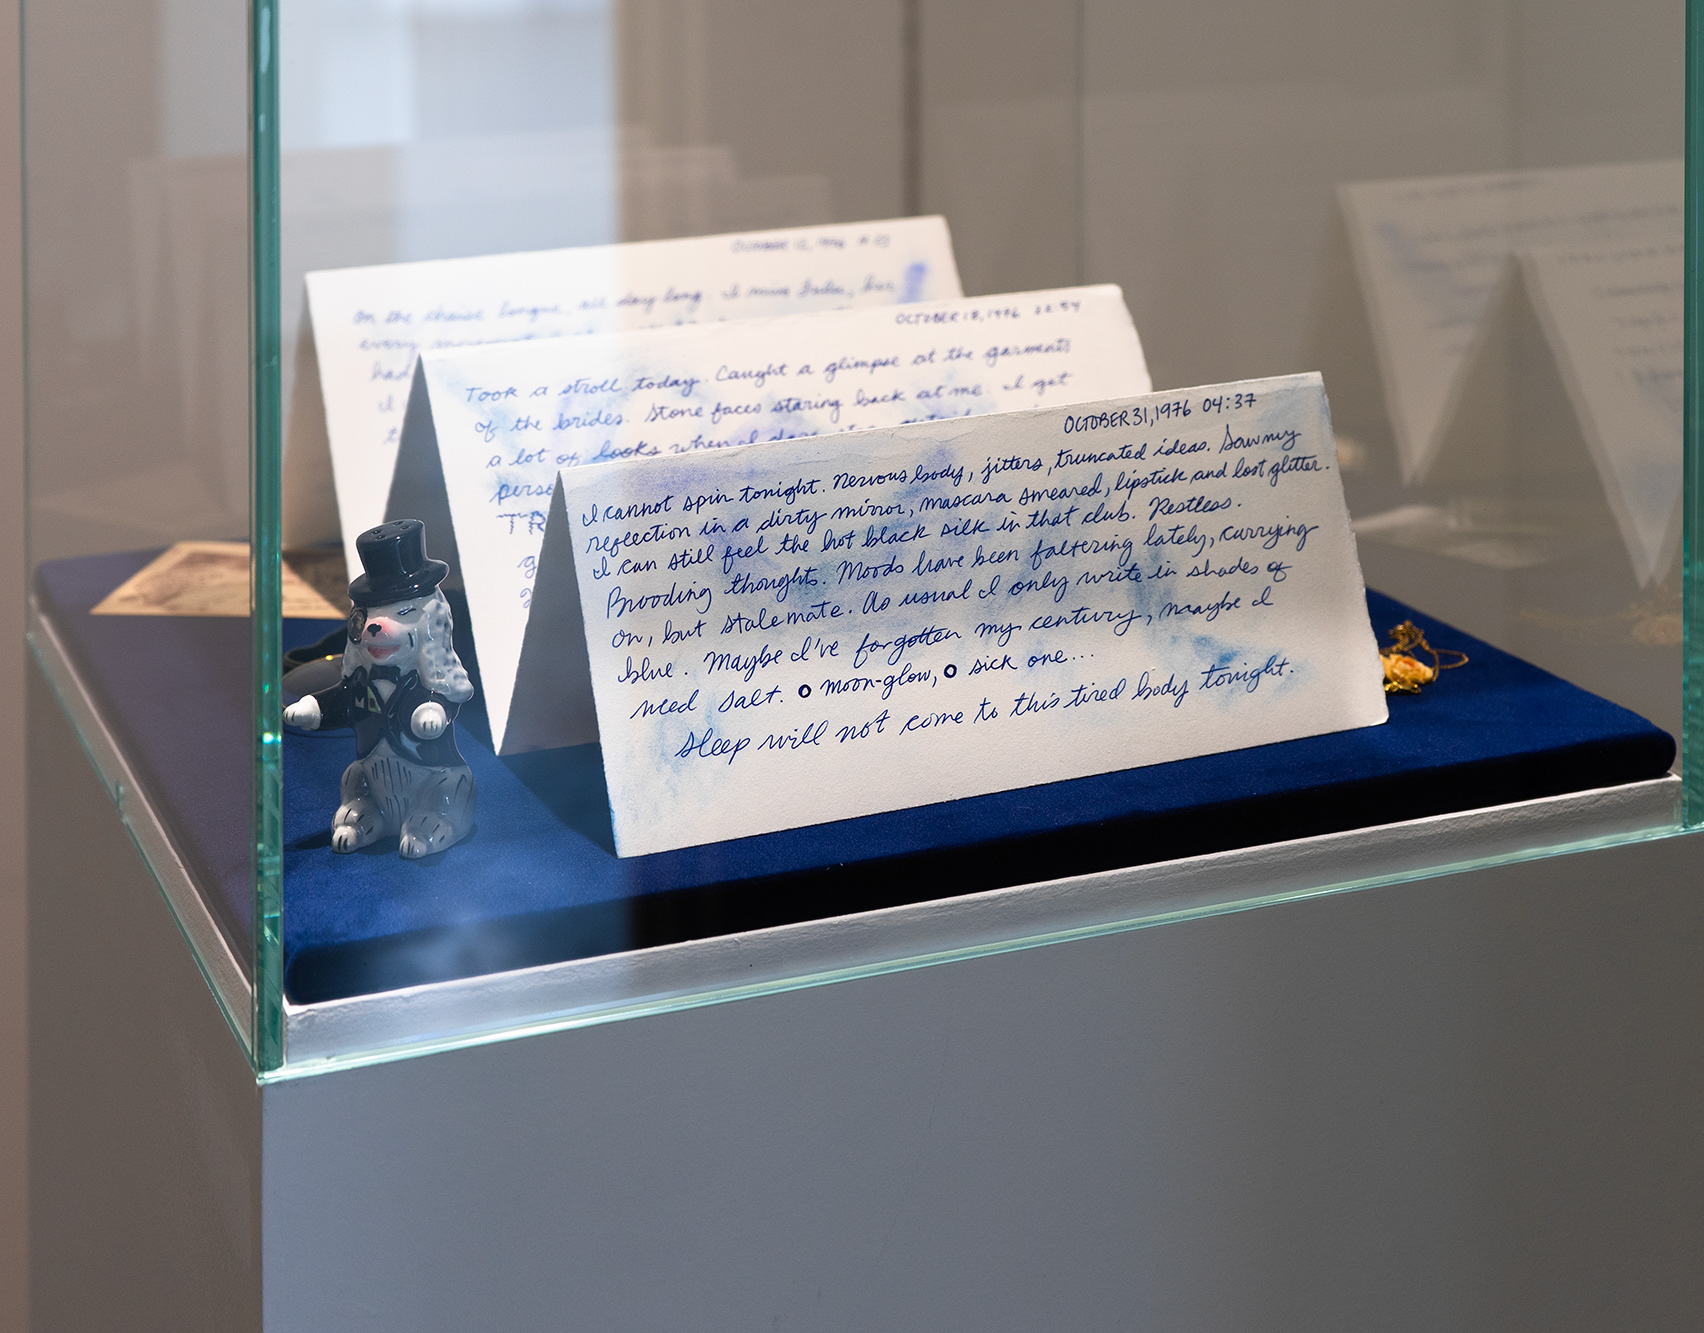 OCTOBER 12, 1976
On the chaise longue, all day long. I miss
every
had
I
OCTOBER 18, 1976 22:54
Took a stroll today. Caught a glimpse at the garments
of the brides. Stone faces staring back at me. I get
a lot of looks when I
perso
TR
g
OCTOBER 31, 1976 04:37
I cannot spin tonight. Nervous body, jitters, truncated ideas. Saw my
reflection in a dirty mirror, mascara smeared, lipstick and lost glitter.
I can still feel the hot black silk in that club. Restless.
Brooding thoughts. Moods have been faltering lately, carrying
on, but stalemate. As usual I only write in shades of
blue. Maybe I've forgotten my century, maybe I
need salt. O moon-glow, O sick one...
Sleep will not come to this tired body tonight.